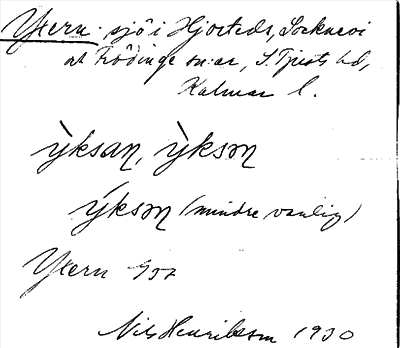 Yxern. sjö i Hjorteds, Locknevi
och Frödinge sn:ar, S. Tjusts hd,
Kalmar l.
ỳksaṇ, ỳksəṇ
ýksəṇ (mindre vanlig)
Yxern
Nils Henriksson 1930